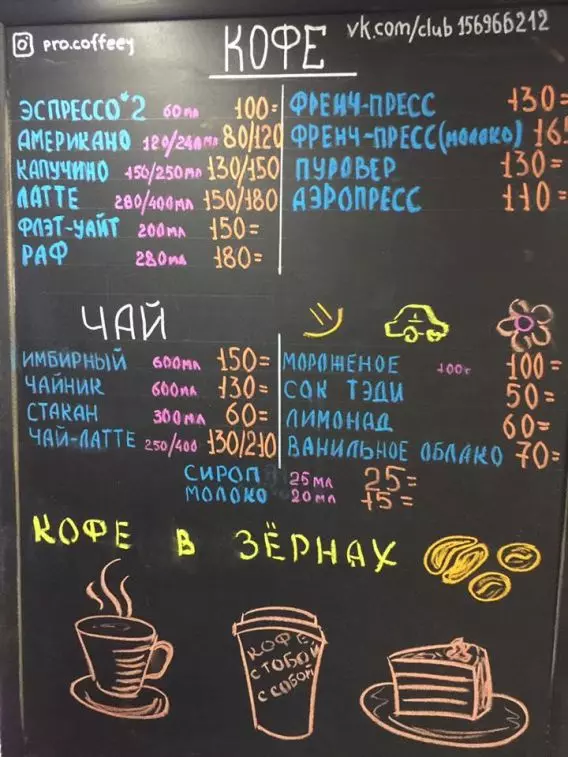 pro.coffeey
КОФЕ
vk.com/club 156966212
ЭСПРЕССО*2 60мл 100=
АМЕРИКАНО 120/240мл 80/120
КАПУЧИНО 150/250мл 130/150
ЛАТТЕ 280/400мл 150/180
ФЛЭТ-УАЙТ 200мл 150=
РАФ 280мл 180=
ФРЕНЧ-ПРЕСС 130=
ФРЕНЧ-ПРЕСС(молоко) 165
ПУРОВЕР 130=
АЭРОПРЕСС 110=
ЧАЙ
ИМБИРНЫЙ 600мл 150=
ЧАЙНИК 600мл 130=
СТАКАН 300мл 60=
ЧАЙ-ЛАТТЕ 250/400 130/210
МОРОЖЕНОЕ 100г 100=
СОК ТЭДИ 50=
ЛИМОНАД 60=
ВАНИЛЬНОЕ ОБЛАКО 70=
СИРОП 25мл 25=
МОЛОКО 20мл 15=
КОФЕ В ЗЁРНАХ
КОФЕ
С ТОБОЙ
С СОБОЙ